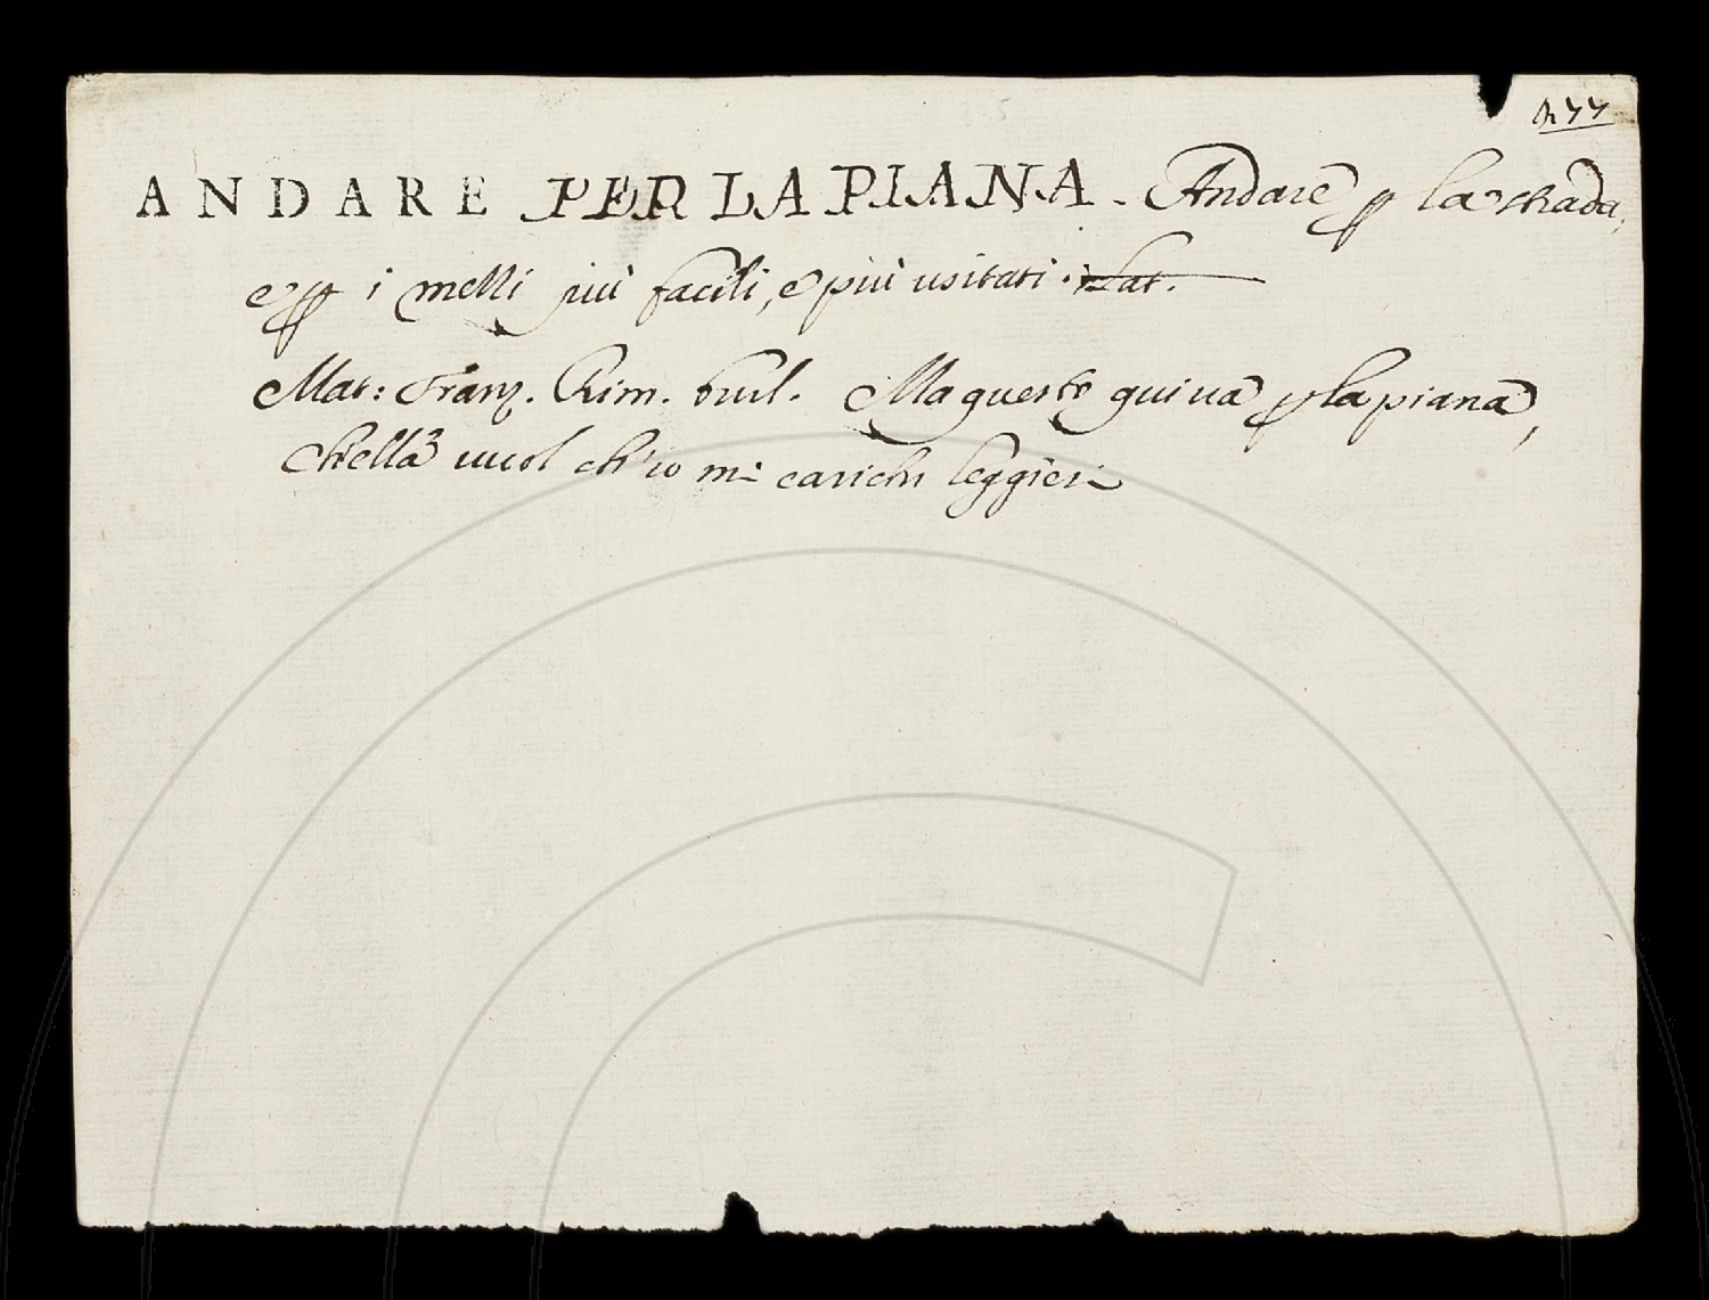 ANDARE PER LA PIANA. Andare ꝑ la strada,
e ꝑ i mezzi più facili, e più usitati. Lat.
Mat: Franz. Rim. burl. Ma queste qui uà ꝑ la piana,
Ch'ella vuol ch'io mi carichi leggieri